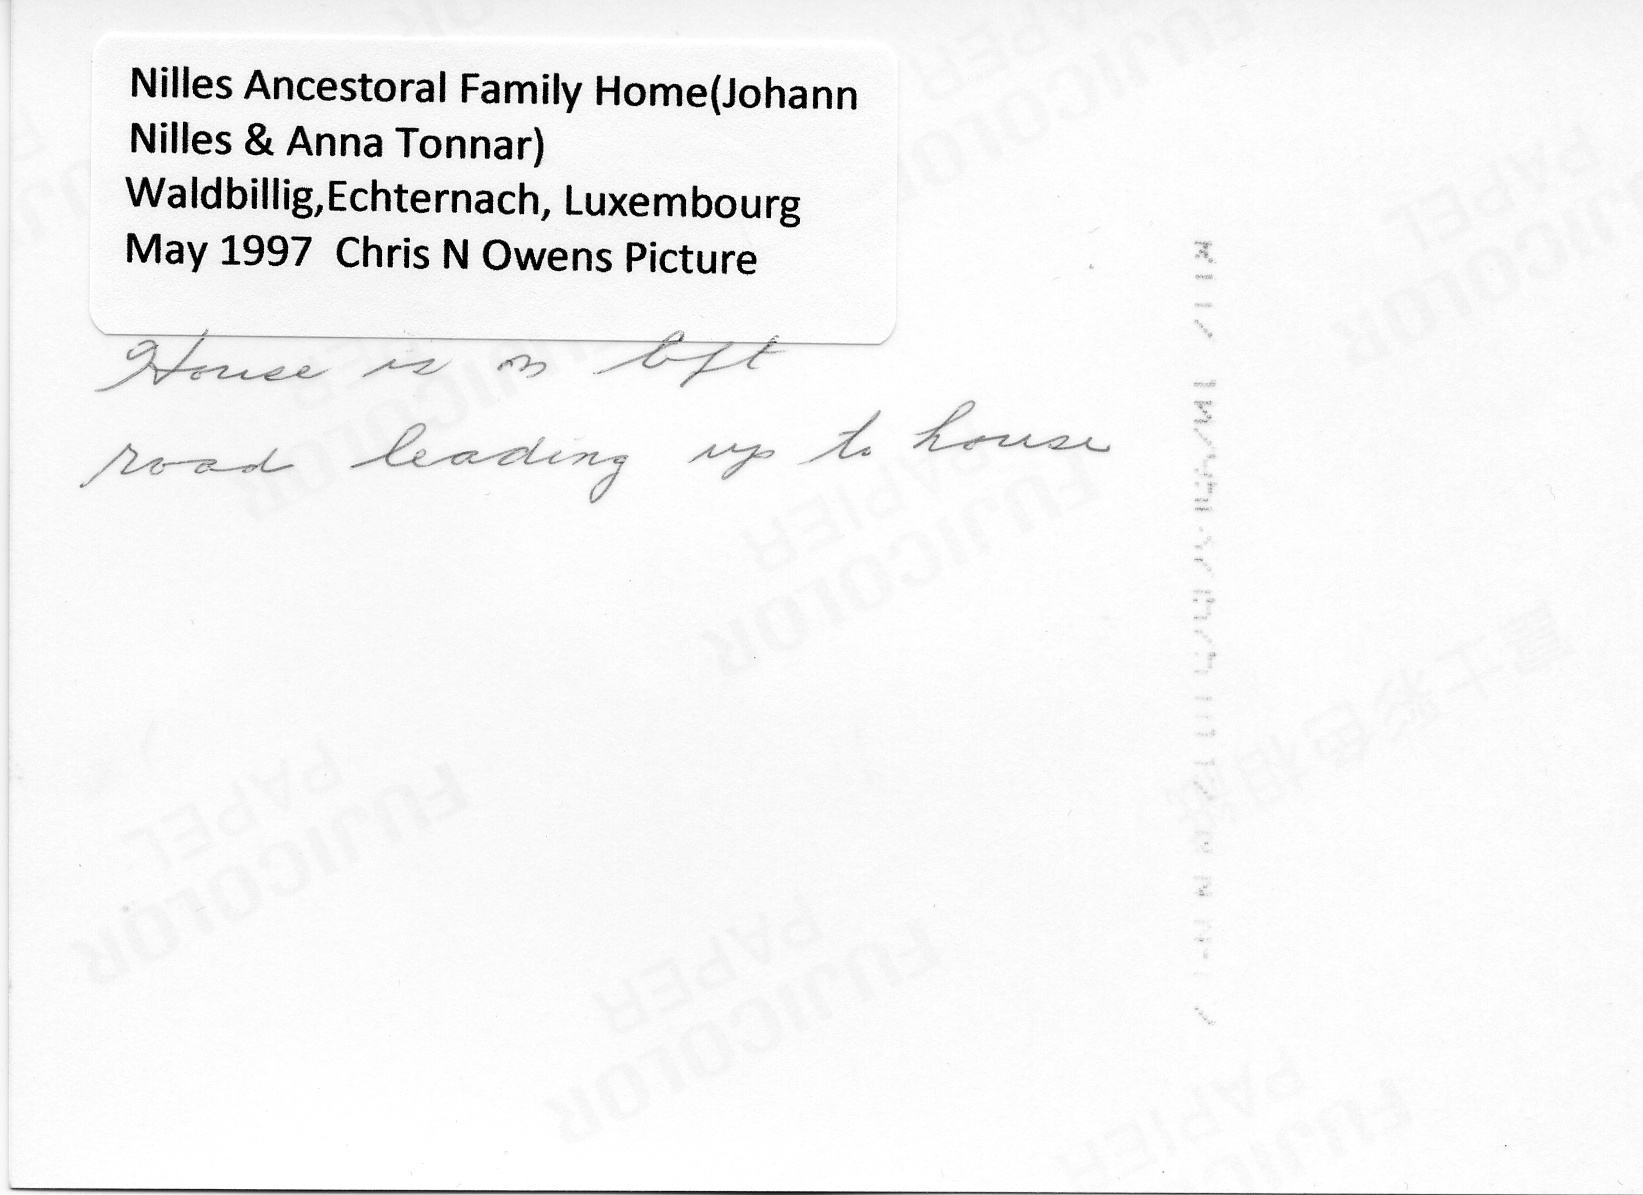 Nilles Ancestoral Family Home(Johann
Nilles & Anna Tonnar)
Waldbillig,Echternach, Luxembourg
May 1997  Chris N Owens Picture
House is on left
road leading up to house
FUJICOLOR
PAPER
FUJICOLOR
PAPEL
FUJICOLOR
PAPIER
富士彩色相紙
FUJICOLOR
PAPEL
FUJICOLOR
PAPER
FUJICOLOR
PAPIER